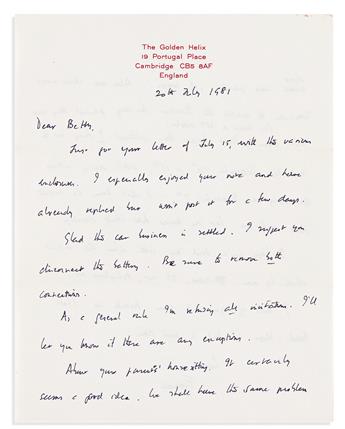 The Golden Helix
19 Portugal Place
Cambridge CB5 8AF
England
20th July 1981
Dear Betty,
Just got your letter of July 15, with the various
enclosures. I especially enjoyed your note and have
already replied but won't post it for a few days.
Glad the car business is settled. I suggest you
disconnect the battery. Be sure to remove both
connections.
As a general rule I'm refusing all invitations. I'll
let you know if there are any exceptions.
About your parents' housesitting. It certainly
seems a good idea. We shall have the same problem